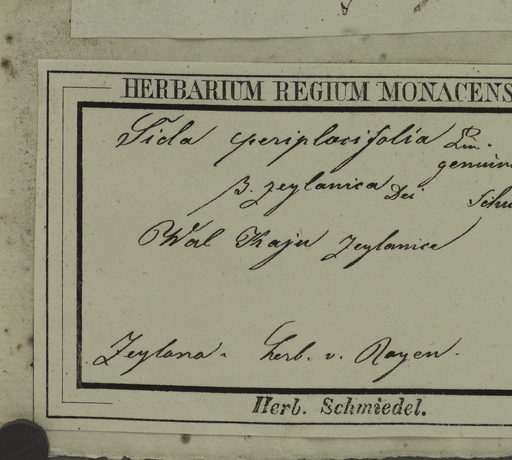 HERBARIUM REGIUM MONACENS
Sida periplocifolia Lin.
genuin
β. zeylanica Dei Schu
Wal Kaju Zeylanice
Zeylona. herb. v. Royen.
Herb. Schmiedel.